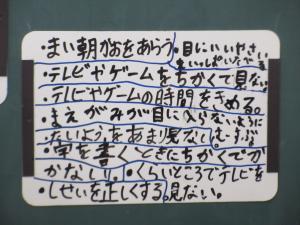 ・まい朝かおをあらう ・目にいいやさい
をいっぱいたべる
・テレビやゲームをちかくで見ない。
・テレビやゲームの時間をきめる。
・まえがみが目に入らないように
たいようをあまり見ない。むすぶ
・字を書くときにちかくでか
かない。・くらいところでテレビを
・しせいを正しくする。見ない。